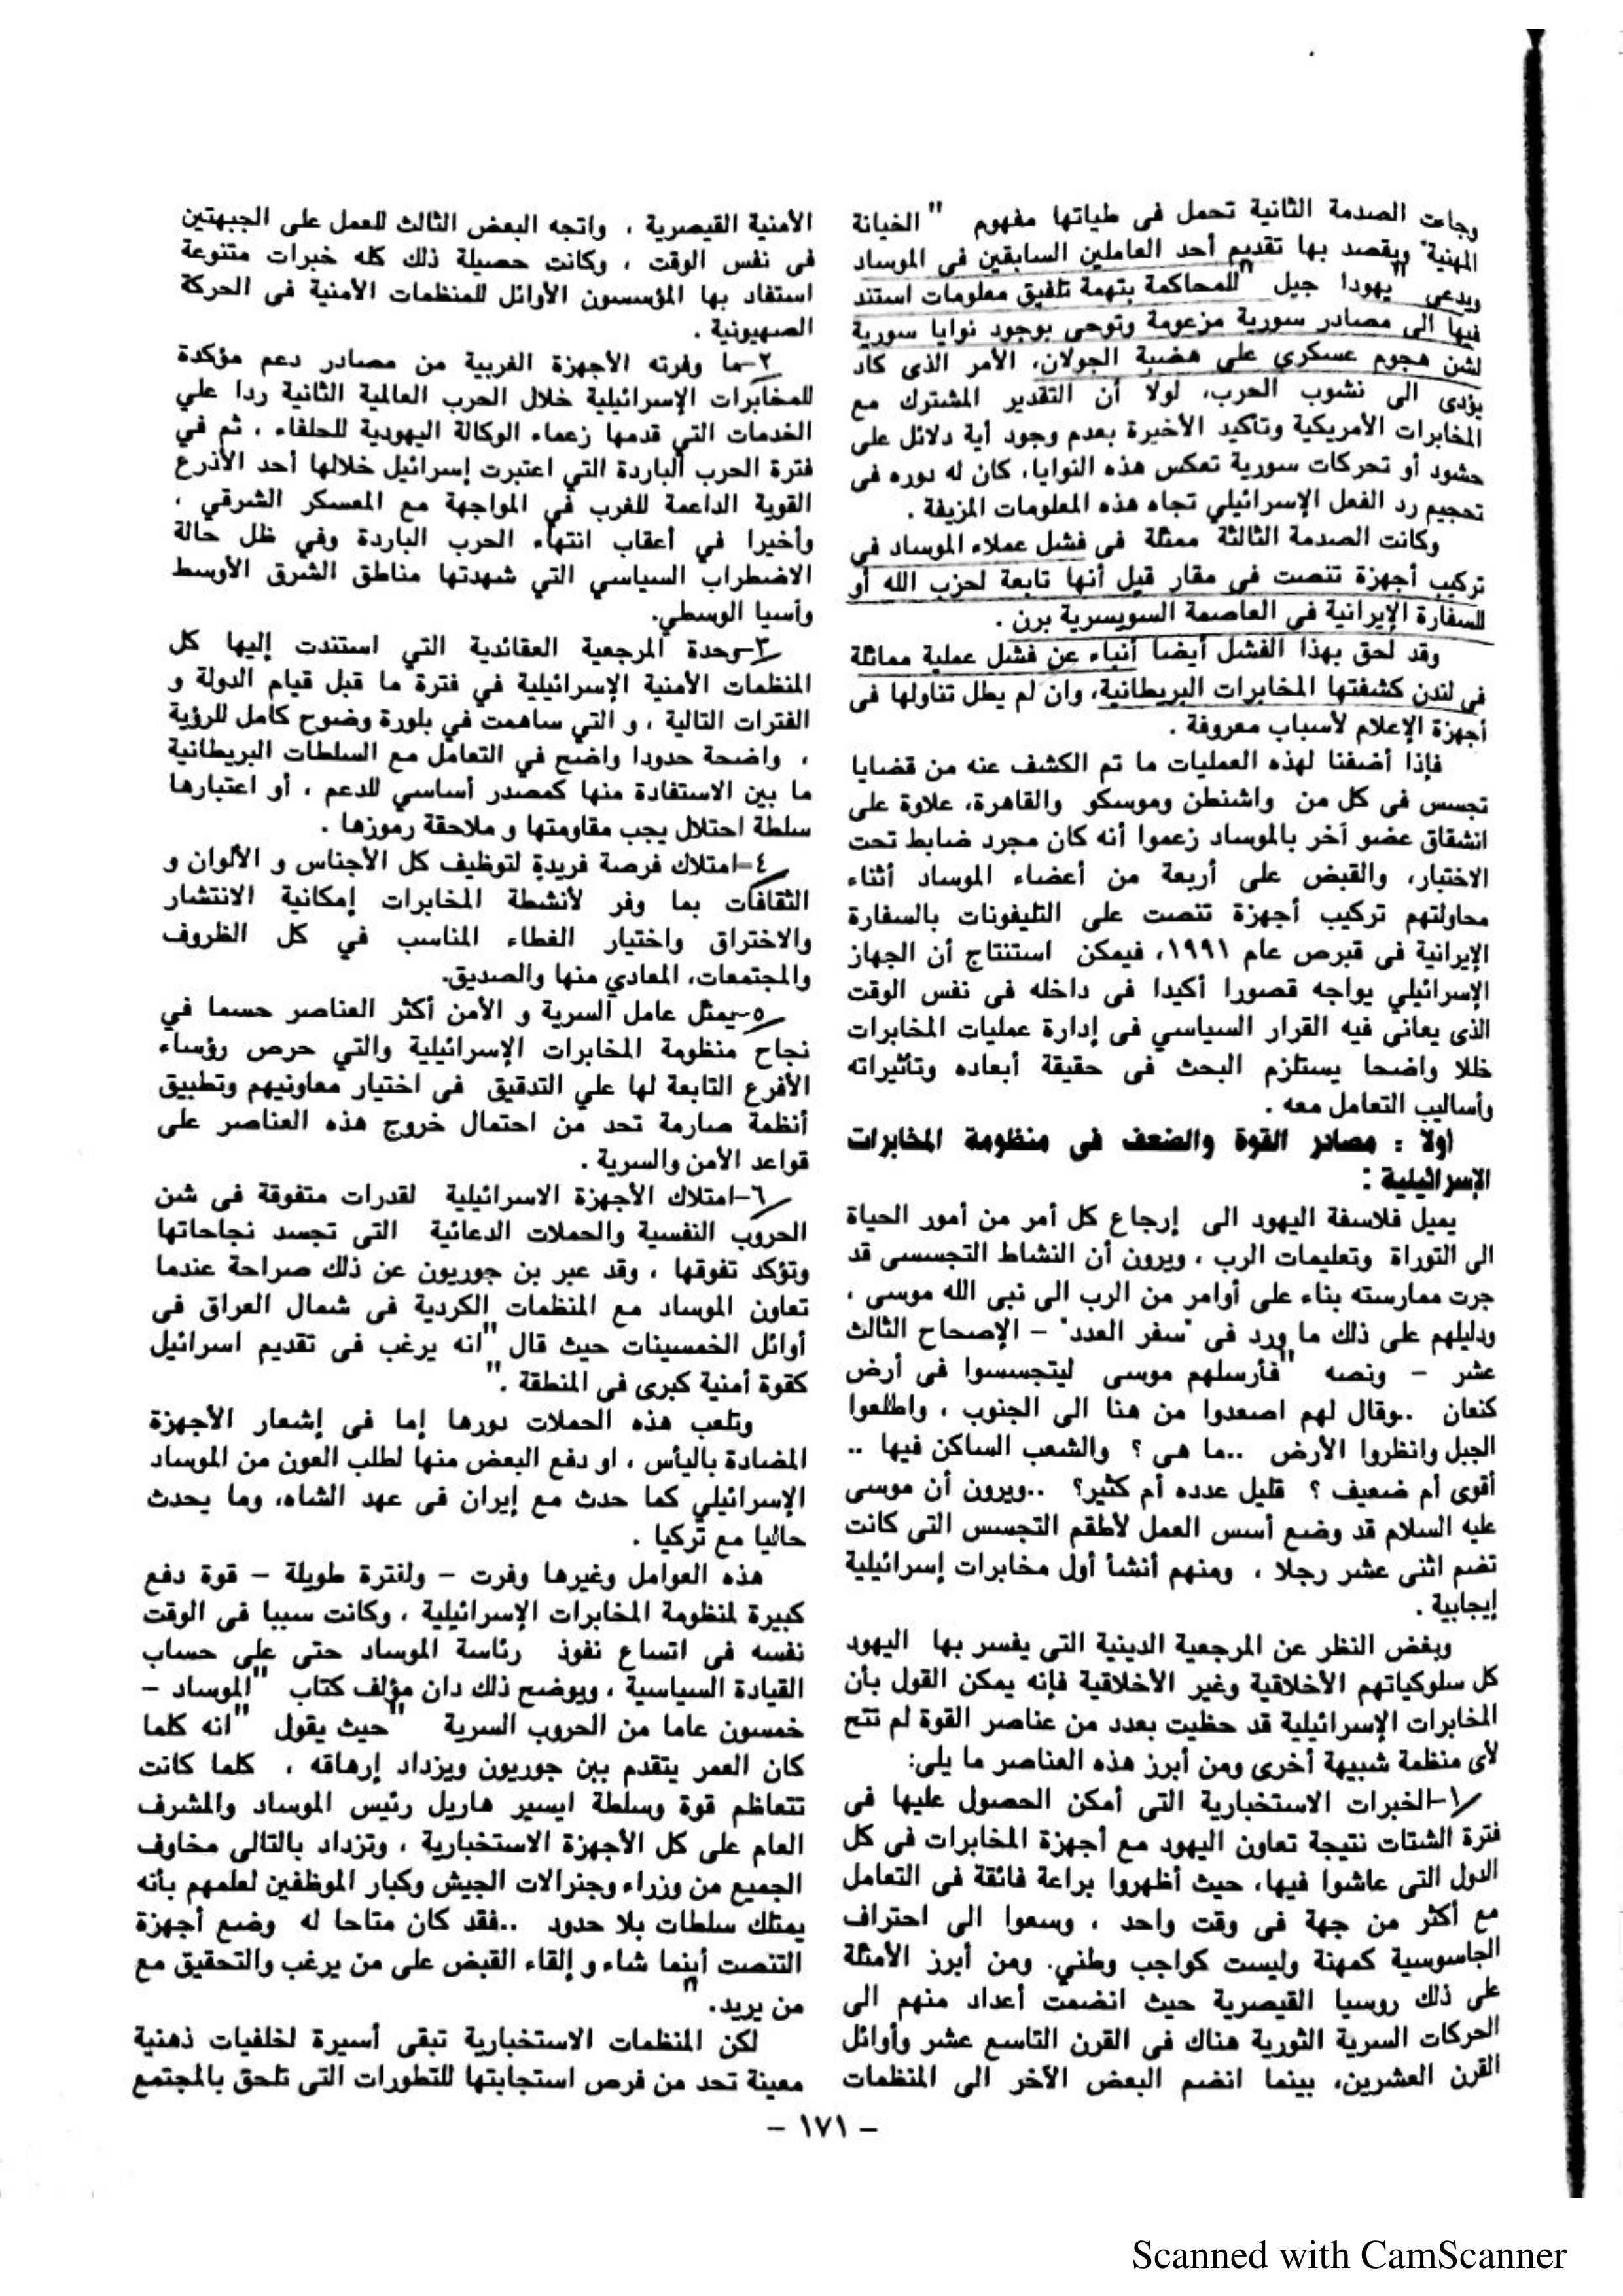 وجاءت الصدمة الثانية تحمل فى طياتها مفهوم " الخيانة
المهنية" ويقصد بها تقديم أحد العاملين السابقين فى الموساد
ويدعى "يهودا جيل "للمحاكمة بتهمة تلفيق معلومات استند
فيها الى مصادر سورية مزعومة وتوحى بوجود نوايا سورية
لشن هجوم عسكري على هضبة الجولان، الأمر الذى كاد
يؤدى الى نشوب الحرب، لولا أن التقدير المشترك مع
المخابرات الأمريكية وتأكيد الأخيرة بعدم وجود أية دلائل على
حشود أو تحركات سورية تعكس هذه النوايا، كان له دوره فى
تحجيم رد الفعل الإسرائيلي تجاه هذه المعلومات المزيفة .
وكانت الصدمة الثالثة ممثلة فى فشل عملاء الموساد فى
تركيب أجهزة تنصت فى مقار قيل أنها تابعة لحزب الله أو
للسفارة الإيرانية فى العاصمة السويسرية برن .
وقد لحق بهذا الفشل أيضا أنباء عن فشل عملية مماثلة
فى لندن كشفتها المخابرات البريطانية، وان لم يطل تناولها فى
أجهزة الإعلام لأسباب معروفة .
فإذا أضفنا لهذه العمليات ما تم الكشف عنه من قضايا
تجسس فى كل من واشنطن وموسكو والقاهرة، علاوة على
انشقاق عضو آخر بالموساد زعموا أنه كان مجرد ضابط تحت
الاختبار، والقبض على أربعة من أعضاء الموساد أثناء
محاولتهم تركيب أجهزة تنصت على التليفونات بالسفارة
الإيرانية فى قبرص عام ١٩٩١، فيمكن استنتاج أن الجهاز
الإسرائيلي يواجه قصورا أكيدا فى داخله فى نفس الوقت
الذى يعانى فيه القرار السياسي فى إدارة عمليات المخابرات
خللا واضحا يستلزم البحث فى حقيقة أبعاده وتأثيراته
وأساليب التعامل معه .
اولا : مصادر القوة والضعف فى منظومة المخابرات
الإسرائيلية :
يميل فلاسفة اليهود الى إرجاع كل أمر من أمور الحياة
الى التوراة وتعليمات الرب ، ويرون أن النشاط التجسسى قد
جرت ممارسته بناء على أوامر من الرب الى نبى الله موسى ،
ودليلهم على ذلك ما ورد فى "سفر العدد" – الإصحاح الثالث
عشر – ونصه "فأرسلهم موسى ليتجسسوا فى أرض
كنعان ..وقال لهم اصعدوا من هنا الى الجنوب ، واطلعوا
الجبل وانظروا الأرض ..ما هى ؟ والشعب الساكن فيها ..
أقوى أم ضعيف ؟ قليل عدده أم كثير؟ ..ويرون أن موسى
عليه السلام قد وضع أسس العمل لأطقم التجسس التى كانت
تضم اثنى عشر رجلا ، ومنهم أنشأ أول مخابرات إسرائيلية
إيجابية .
وبغض النظر عن المرجعية الدينية التى يفسر بها اليهود
كل سلوكياتهم الأخلاقية وغير الأخلاقية فإنه يمكن القول بأن
المخابرات الإسرائيلية قد حظيت بعدد من عناصر القوة لم تتح
لأى منظمة شبيهة أخرى ومن أبرز هذه العناصر ما يلى:
١-الخبرات الاستخبارية التى أمكن الحصول عليها فى
فترة الشتات نتيجة تعاون اليهود مع أجهزة المخابرات فى كل
الدول التى عاشوا فيها، حيث أظهروا براعة فائقة فى التعامل
مع أكثر من جهة فى وقت واحد ، وسعوا الى احتراف
الجاسوسية كمهنة وليست كواجب وطني. ومن أبرز الأمثلة
على ذلك روسيا القيصرية حيث انضمت أعداد منهم الى
الحركات السرية الثورية هناك فى القرن التاسع عشر وأوائل
القرن العشرين، بينما انضم البعض الآخر الى المنظمات
الأمنية القيصرية ، واتجه البعض الثالث للعمل على الجبهتين
فى نفس الوقت ، وكانت حصيلة ذلك كله خبرات متنوعة
استفاد بها المؤسسون الأوائل للمنظمات الأمنية فى الحركة
الصهيونية .
٢-ما وفرته الأجهزة الغربية من مصادر دعم مؤكدة
للمخابرات الإسرائيلية خلال الحرب العالمية الثانية ردا علي
الخدمات التي قدمها زعماء الوكالة اليهودية للحلفاء ، ثم في
فترة الحرب الباردة التي اعتبرت إسرائيل خلالها أحد الأذرع
القوية الداعمة للغرب في المواجهة مع المعسكر الشرقي ،
وأخيرا في أعقاب انتهاء الحرب الباردة وفي ظل حالة
الاضطراب السياسي التي شهدتها مناطق الشرق الأوسط
وأسيا الوسطي.
٣-وحدة المرجعية العقائدية التي استندت إليها كل
المنظمات الأمنية الإسرائيلية في فترة ما قبل قيام الدولة و
الفترات التالية ، و التي ساهمت في بلورة وضوح كامل للرؤية
، واضحة حدودا واضح في التعامل مع السلطات البريطانية
ما بين الاستفادة منها كمصدر أساسي للدعم ، أو اعتبارها
سلطة احتلال يجب مقاومتها و ملاحقة رموزها .
٤-امتلاك فرصة فريدة لتوظيف كل الأجناس و الألوان و
الثقافات بما وفر لأنشطة المخابرات إمكانية الانتشار
والاختراق واختيار الغطاء المناسب في كل الظروف
والمجتمعات، المعادي منها والصديق.
٥-يمثل عامل السرية و الأمن أكثر العناصر حسما في
نجاح منظومة المخابرات الإسرائيلية والتي حرص رؤساء
الأفرع التابعة لها علي التدقيق فى اختيار معاونيهم وتطبيق
أنظمة صارمة تحد من احتمال خروج هذه العناصر على
قواعد الأمن والسرية .
٦-امتلاك الأجهزة الاسرائيلية لقدرات متفوقة فى شن
الحروب النفسية والحملات الدعائية التى تجسد نجاحاتها
وتؤكد تفوقها ، وقد عبر بن جوريون عن ذلك صراحة عندما
تعاون الموساد مع المنظمات الكردية فى شمال العراق فى
أوائل الخمسينات حيث قال "انه يرغب فى تقديم اسرائيل
كقوة أمنية كبرى فى المنطقة ."
وتلعب هذه الحملات دورها إما فى إشعار الأجهزة
المضادة باليأس ، او دفع البعض منها لطلب العون من الموساد
الإسرائيلي كما حدث مع إيران فى عهد الشاه، وما يحدث
حاليا مع تركيا .
هذه العوامل وغيرها وفرت – ولفترة طويلة – قوة دفع
كبيرة لمنظومة المخابرات الإسرائيلية ، وكانت سببا فى الوقت
نفسه فى اتساع نفوذ رئاسة الموساد حتى على حساب
القيادة السياسية ، ويوضح ذلك دان مؤلف كتاب "الموساد –
خمسون عاما من الحروب السرية "حيث يقول "انه كلما
كان العمر يتقدم ببن جوريون ويزداد إرهاقه ، كلما كانت
تتعاظم قوة وسلطة ايسير هاريل رئيس الموساد والمشرف
العام على كل الأجهزة الاستخبارية ، وتزداد بالتالى مخاوف
الجميع من وزراء وجنرالات الجيش وكبار الموظفين لعلمهم بأنه
يمتلك سلطات بلا حدود ..فقد كان متاحا له وضع أجهزة
التنصت أينما شاء و إلقاء القبض على من يرغب والتحقيق مع
من يريد."
لكن المنظمات الاستخبارية تبقى أسيرة لخلفيات ذهنية
معينة تحد من فرص استجابتها للتطورات التى تلحق بالمجتمع
– ١٧١ –
Scanned with CamScanner